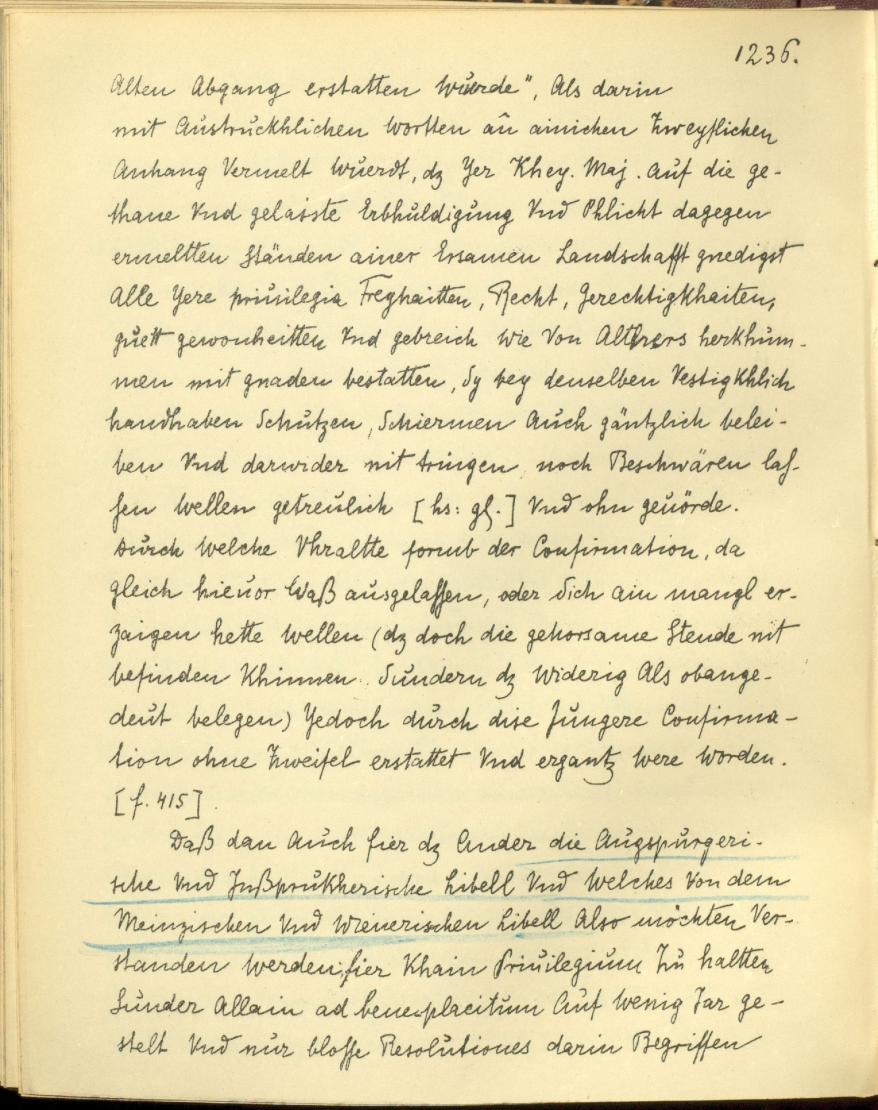 1236.
Alten Abgang erstatten wuerde", Als darin
mit Austruckhlichen wortten an ainichen Zweyflichen
Anhang Vermelt wuerdt, dz Yer Khey. Maj. auf die ge-
thane Vnd gelaiste Erbhuldigung Vnd Phlicht dagegen
ermeltten Ständen ainer Ersamen Landschafft gnedigst
Alle Yere priuilegia Freyhaitten, Recht, Gerechtigkhaiten,
guett gewonheitten Vnd gebreich wie Von Althers herkhum-
men mit gnaden bestatten, Sy bey denselben Vestigkhlich
handhaben Schutzen, Schiermen Auch gäntzlich belei-
ben Vnd darwider nit tringen noch Beschwären las-
sen wellen getreulich [hs: gl.] Vnd ohn geuörde.
Durch welche Vhraltte formb der Confirmation, da
gleich hieuor Waß ausgelassen, oder Sich ain mangl er-
zaigen hette wellen (dz doch die gehorsame Stende nit
befinden Khinnen Sundern dz widerig Als obange-
deut belegen) Yedoch durch dise Jungere Confirma-
tion ohne Zweifel erstattet Vnd ergantz were worden.
[f. 415].
Daß dan Auch fier dz Ander die Augspurgeri-
sche Vnd Jnßprukherische Libell Vnd welches Von dem
Meinzischen Vnd Wienerischen Libell Also möchten Ver-
standen werden, fier Khain Priuilegium Zu haltten
Sunder Allain ad beneplacitum Auf wenig Jar ge-
stelt Vnd nur blosse Resolutiones darin Begriffen